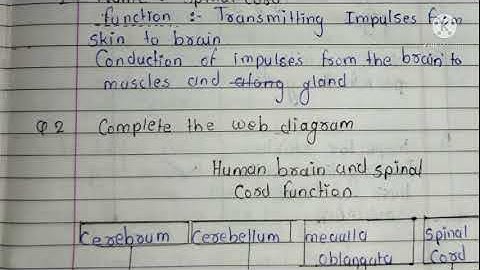 function :- Transmitting Impulses from
skin to brain
Conduction of impulses from the brain to
muscles and along gland
Q 2 Complete the web diagram
Human brain and spinal
Cord function
Cerebrum Cerebellum medulla Spinal
oblongata Cord